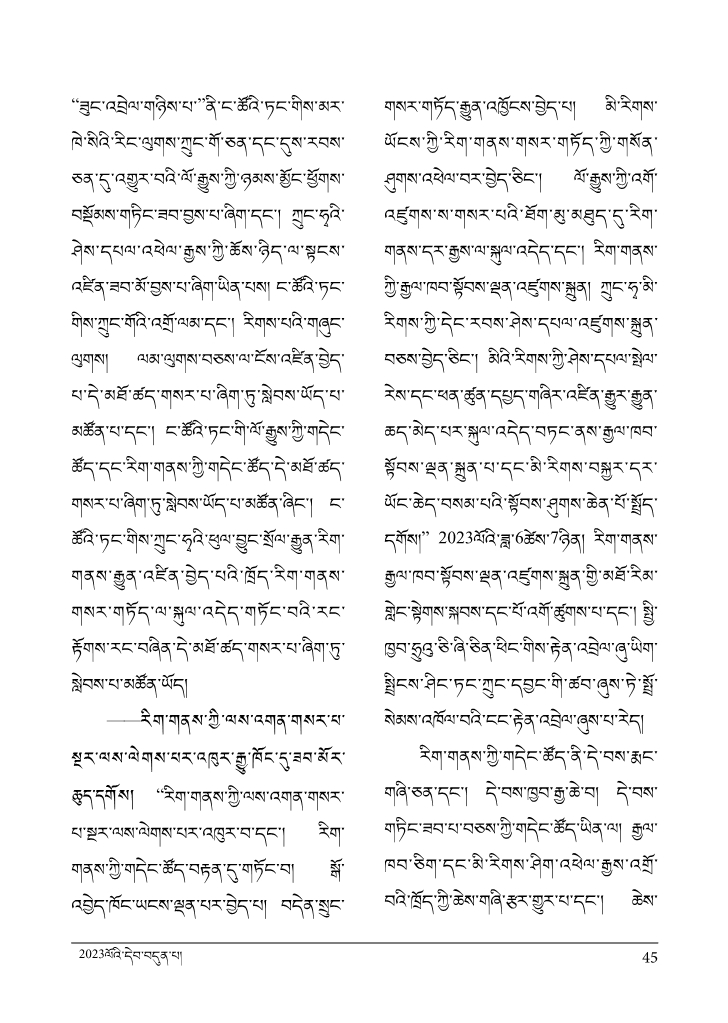 “ཟུང་འབྲེལ་གཉིས་པ་”ནི་ང་ཚོའི་ཏང་གིས་མར་
ཁེ་སིའི་རིང་ལུགས་ཀྲུང་གོ་ཅན་དང་དུས་རབས་
ཅན་དུ་འགྱུར་བའི་ལོ་རྒྱུས་ཀྱི་ཉམས་མྱོང་ཕྱོགས་
བསྡོམས་གཏིང་ཟབ་བྱས་པ་ཞིག་དང་། ཀྲུང་ཧྭའི་
ཤེས་དཔལ་འཕེལ་རྒྱས་ཀྱི་ཆོས་ཉིད་ལ་སྟངས་
འཛིན་ཟབ་མོ་བྱས་པ་ཞིག་ཡིན་པས། ང་ཚོའི་ཏང་
གིས་ཀྲུང་གོའི་འགྲོ་ལམ་དང་། རིགས་པའི་གཞུང་
ལུགས། ལམ་ལུགས་བཅས་ལ་ངོས་འཛིན་བྱེད་
པ་དེ་མཐོ་ཚད་གསར་པ་ཞིག་ཏུ་སླེབས་ཡོད་པ་
མཚོན་པ་དང་། ང་ཚོའི་ཏང་གི་ལོ་རྒྱུས་ཀྱི་གདེང་
ཚོད་དང་རིག་གནས་ཀྱི་གདེང་ཚོད་དེ་མཐོ་ཚད་
གསར་པ་ཞིག་ཏུ་སླེབས་ཡོད་པ་མཚོན་ཞིང་། ང་
ཚོའི་ཏང་གིས་ཀྲུང་ཧྭའི་ཕུལ་བྱུང་སྲོལ་རྒྱུན་རིག་
གནས་རྒྱུན་འཛིན་བྱེད་པའི་ཁྲོད་རིག་གནས་
གསར་གཏོད་ལ་སྐུལ་འདེད་གཏོང་བའི་རང་
རྟོགས་རང་བཞིན་དེ་མཐོ་ཚད་གསར་པ་ཞིག་ཏུ་
སླེབས་པ་མཚོན་ཡོད།
——རིག་གནས་ཀྱི་ལས་འགན་གསར་པ་
སྔར་ལས་ལེགས་པར་འཁུར་རྒྱུ་ཁོང་དུ་ཟབ་མོར་
ཆུད་དགོས། “རིག་གནས་ཀྱི་ལས་འགན་གསར་
པ་སྔར་ལས་ལེགས་པར་འཁུར་བ་དང་། རིག་
གནས་ཀྱི་གདེང་ཚོད་བརྟན་དུ་གཏོང་བ། སྒོ་
འབྱེད་ཁོང་ཡངས་ལྡན་པར་བྱེད་པ། བདེན་སྲུང་
གསར་གཏོད་རྒྱུན་འཁྱོངས་བྱེད་པ། མི་རིགས་
ཡོངས་ཀྱི་རིག་གནས་གསར་གཏོད་ཀྱི་གསོན་
ཤུགས་འཕེལ་བར་བྱེད་ཅིང་། ལོ་རྒྱུས་ཀྱི་འགོ་
འཛུགས་ས་གསར་པའི་ཐོག་མུ་མཐུད་དུ་རིག་
གནས་དར་རྒྱས་ལ་སྐུལ་འདེད་དང་། རིག་གནས་
ཀྱི་རྒྱལ་ཁབ་སྟོབས་ལྡན་འཛུགས་སྐྲུན། ཀྲུང་ཧྭ་མི་
རིགས་ཀྱི་དེང་རབས་ཤེས་དཔལ་འཛུགས་སྐྲུན་
བཅས་བྱེད་ཅིང་། མིའི་རིགས་ཀྱི་ཤེས་དཔལ་སྤེལ་
རེས་དང་ཕན་ཚུན་དཔྱད་གཞིར་འཛིན་རྒྱུར་རྒྱུན་
ཆད་མེད་པར་སྐུལ་འདེད་བཏང་ནས་རྒྱལ་ཁབ་
སྟོབས་ལྡན་སྐྲུན་པ་དང་མི་རིགས་བསྐྱར་དར་
ཡོང་ཆེད་བསམ་པའི་སྟོབས་ཤུགས་ཆེན་པོ་སྤྲོད་
དགོས།” 2023ལོའི་ཟླ་6ཚེས་7ཉིན། རིག་གནས་
རྒྱལ་ཁབ་སྟོབས་ལྡན་འཛུགས་སྐྲུན་གྱི་མཐོ་རིམ་
གླེང་སྟེགས་སྐབས་དང་པོ་འགོ་ཚུགས་པ་དང་། སྤྱི་
ཁྱབ་ཧྲུའུ་ཅི་ཞི་ཅིན་ཕིང་གིས་རྟེན་འབྲེལ་ཞུ་ཡིག་
སྤྲིངས་ཤིང་ཏང་ཀྲུང་དབྱང་གི་ཚབ་ཞུས་ཏེ་སྤྲོ་
སེམས་འཁོལ་བའི་ངང་རྟེན་འབྲེལ་ཞུས་པ་རེད།
རིག་གནས་ཀྱི་གདེང་ཚོད་ནི་དེ་བས་རྨང་
གཞི་ཅན་དང་། དེ་བས་ཁྱབ་རྒྱ་ཆེ་བ། དེ་བས་
གཏིང་ཟབ་པ་བཅས་ཀྱི་གདེང་ཚོད་ཡིན་ལ། རྒྱལ་
ཁབ་ཅིག་དང་མི་རིགས་ཤིག་འཕེལ་རྒྱས་འགྲོ་
བའི་ཁྲོད་ཀྱི་ཆེས་གཞི་རྩར་གྱུར་པ་དང་། ཆེས་
2023ལོའི་དེབ་བདུན་པ། 45